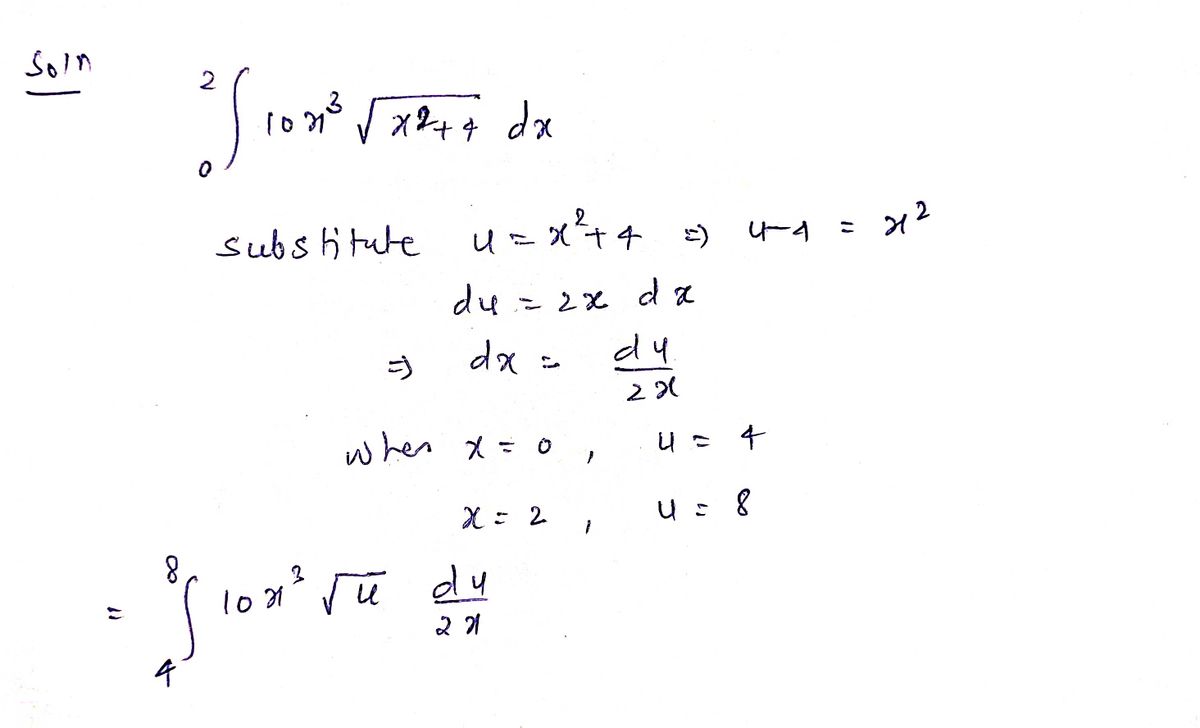 Soln
∫₀² 10x³ √(x²+4) dx
substitute u = x²+4 ⇒ u-4 = x²
du = 2x dx
⇒ dx = du/2x
when x = 0, u = 4
x = 2, u = 8
= ∫₄⁸ 10x³ √u du/2x